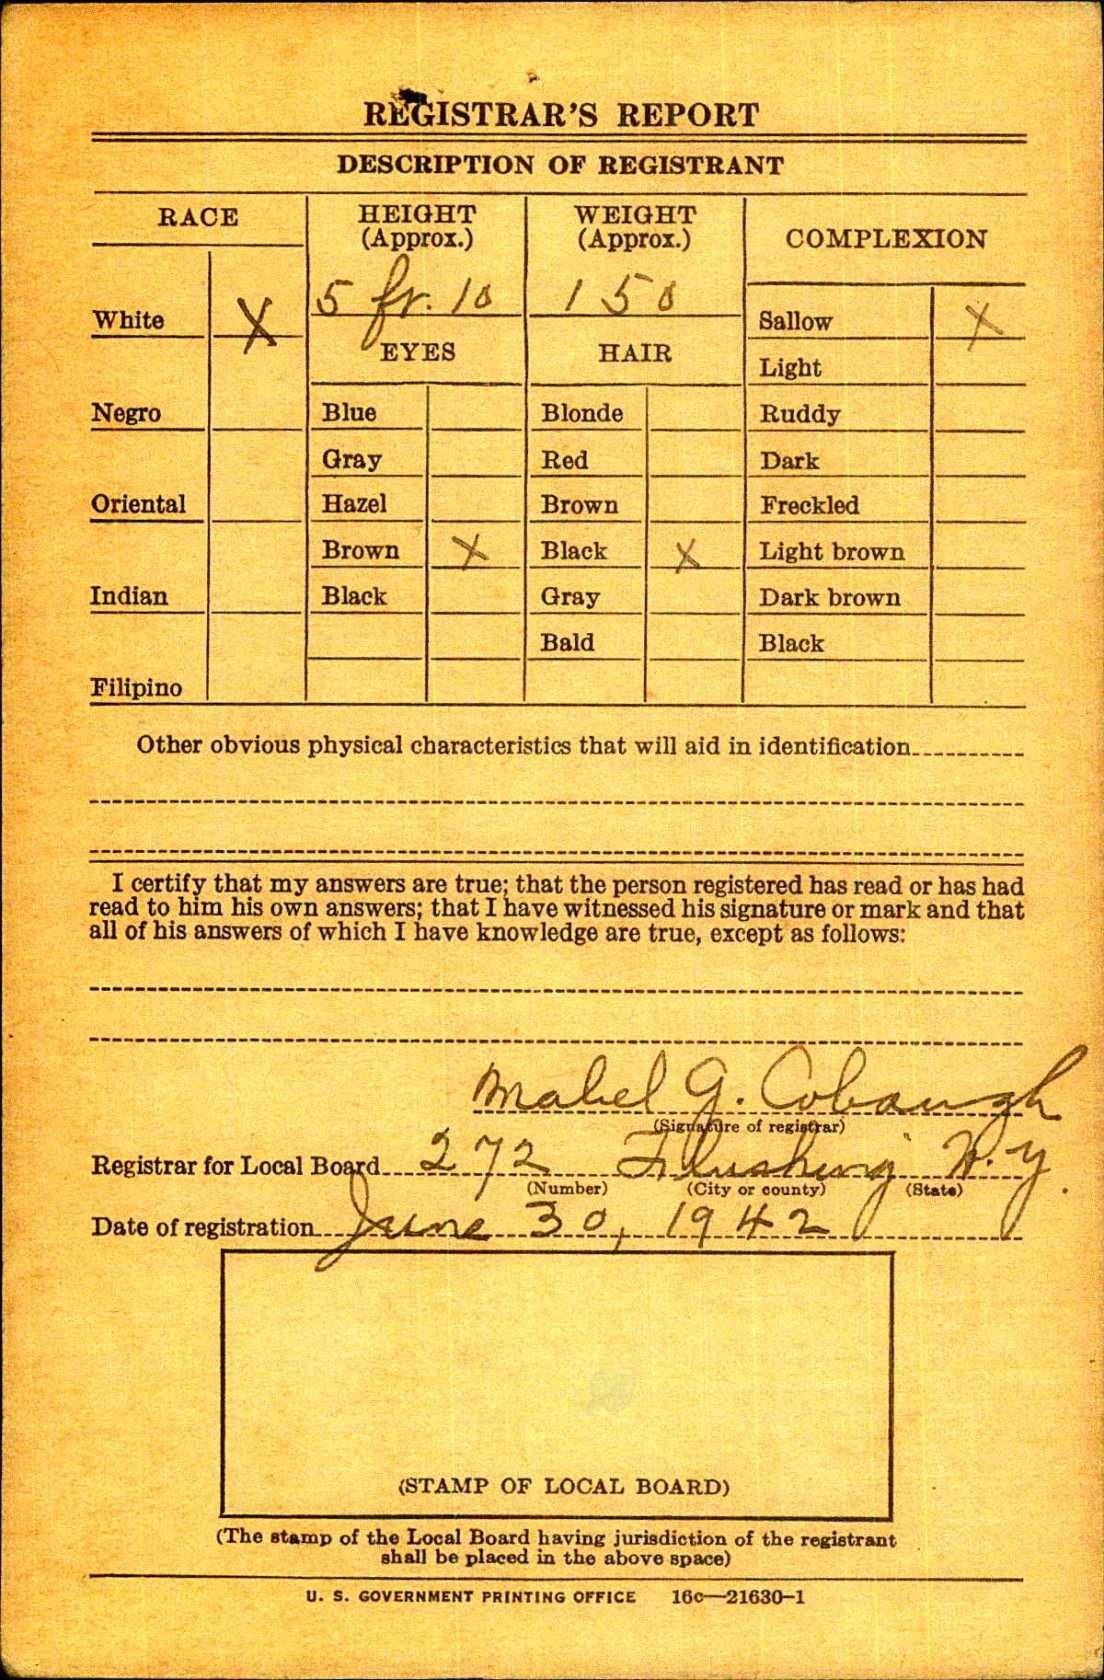 REGISTRAR'S REPORT
DESCRIPTION OF REGISTRANT
RACE
HEIGHT
(Approx.)
WEIGHT
(Approx.)
COMPLEXION
5 ft. 10
150
White X
Sallow X
EYES
HAIR
Light
Negro
Blue
Blonde
Ruddy
Gray
Red
Dark
Oriental
Hazel
Brown
Freckled
Brown X
Black X
Light brown
Indian
Black
Gray
Dark brown
Bald
Black
Filipino
Other obvious physical characteristics that will aid in identification
I certify that my answers are true; that the person registered has read or has had
read to him his own answers; that I have witnessed his signature or mark and that
all of his answers of which I have knowledge are true, except as follows:
Mabel G. Cobaugh
(Signature of registrar)
Registrar for Local Board 272 Flushing N.Y.
(Number) (City or county) (State)
Date of registration June 30, 1942
(STAMP OF LOCAL BOARD)
(The stamp of the Local Board having jurisdiction of the registrant
shall be placed in the above space)
U. S. GOVERNMENT PRINTING OFFICE 16c—21630-1